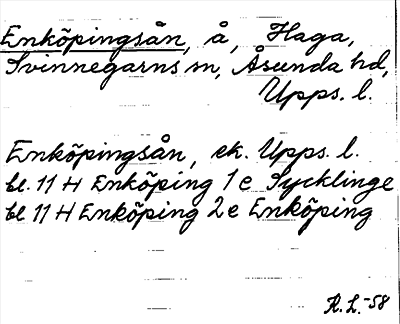 Enköpingsån, å, Haga,
Svinnegarns sn, Åsunda hd,
Upps. l.
Enköpingsån, ek. Upps. l.
bl. 11 H Enköping 1 e Sycklinge
bl 11 H Enköping 2 e Enköping
R. L. -58